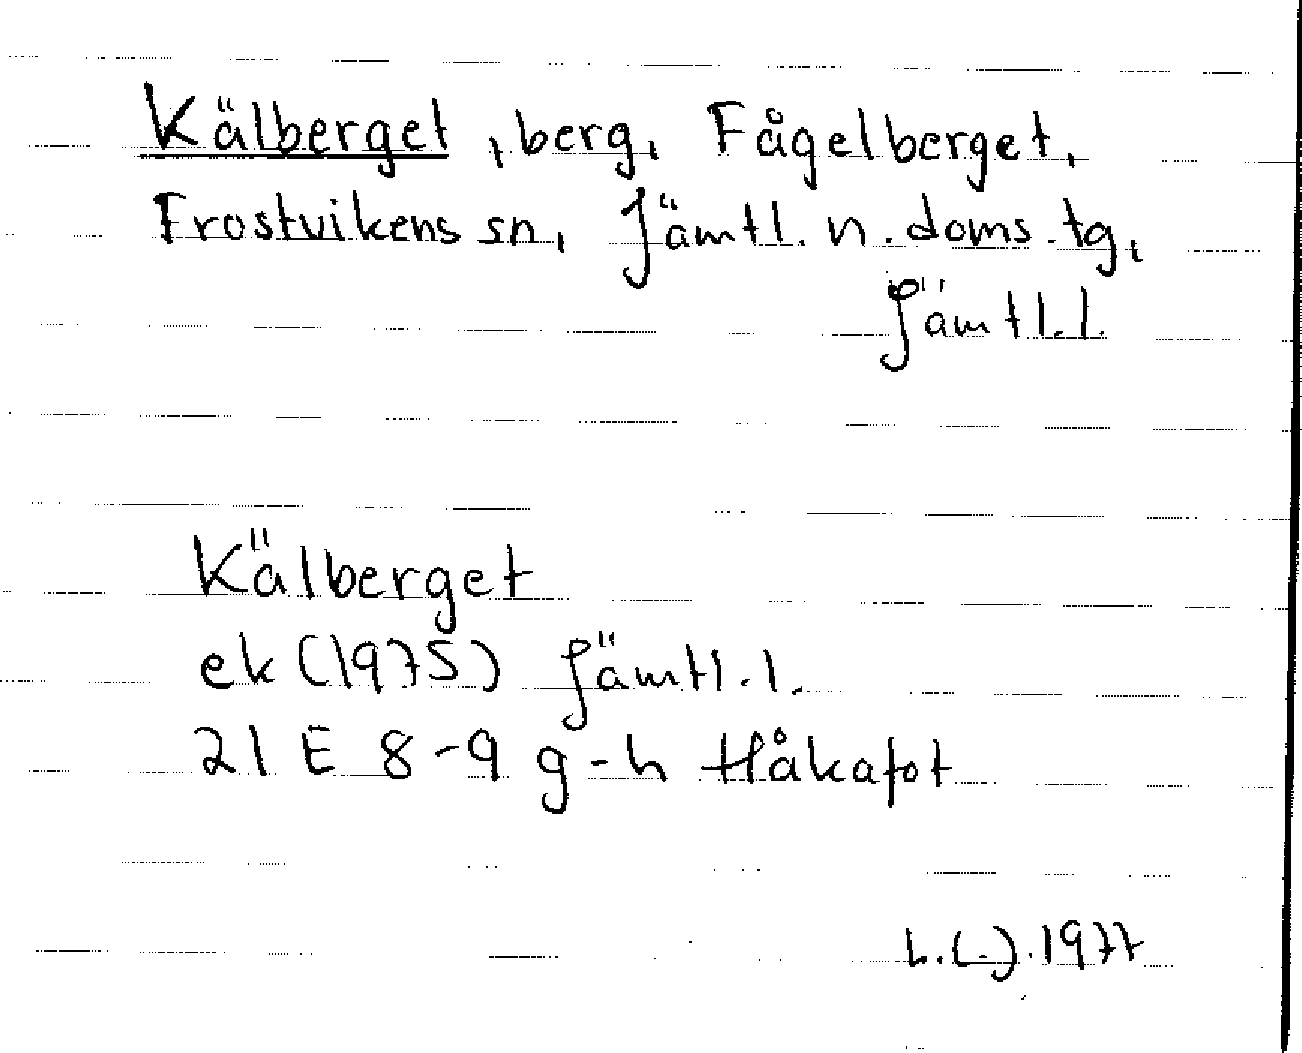 Kälberget, berg, Fågelberget,
Frostvikens sn, Jämtl. n. doms. tg,
Jämtl. l.
Kälberget
ek (1975) Jämtl. l.
21 E 8-9 g-h Håkafot
1977